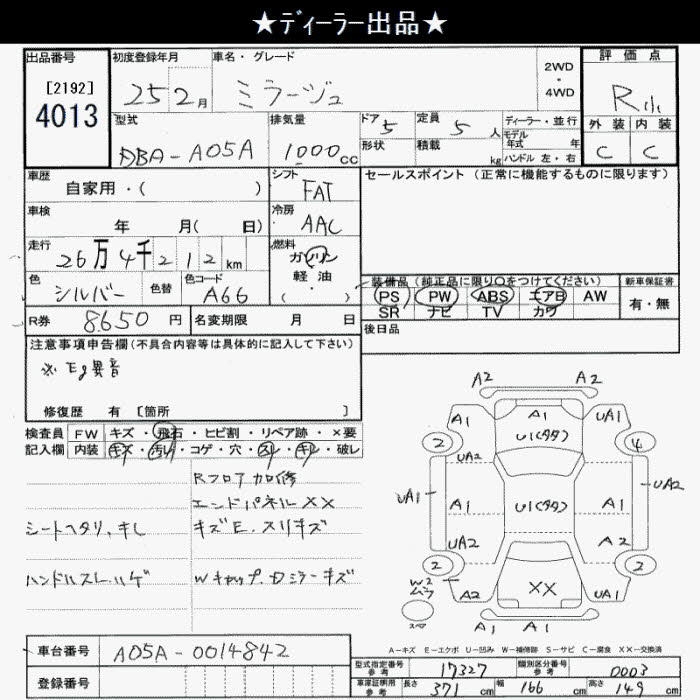 ★ディーラー出品★
出品番号 初度登録年月 車名・グレード 2WD ・ 4WD 評価点
[2192]
4013
25 2月 ミラージュ R小
型式 排気量 ドア 5 定員 5 人 ディーラー・並行 外装 内装
DBA-A05A 1000cc 形状 積載 kg モデル年式 年 ハンドル 左・右 C C
車歴 シフト セールスポイント(正常に機能するものに限ります)
自家用・( ) FAT
車検 冷房
年 月( 日) AAC
走行 燃料
26万4千212km ガソリン
色 色替 色コード 軽・油
シルバー A66 ・( )
装備品(純正品に限り○をつけてください) 新車保証書
PS PW ABS エアB AW 有・無
SR ナビ TV カワ
R券 8650 円 名変期限 月 日 後日品
注意事項申告欄(不具合内容等は具体的に記入して下さい)
※Eg異音
修復歴 有 [箇所 ]
検査員 FW キズ・飛石・ヒビ割・リペア跡・×要
記入欄 内装 キズ・汚レ・コゲ・穴・スレ・キレ・破レ
Rフロア加修
エンドパネルXX
シートヘタリ、キレ キズE.スリキズ
ハンドルスレ.ハゲ Wキャップ.Dミラーキズ
A2 A2
A1 A1 UA1
2 U1(タタ) 4
UA2
UA1 A1 U1(タタ) A1 UA2
UA2 A2
2 2
W2 ムラ A2 XX UA1
スペア A1 A1
A−キズ E−エクボ U−凹み W−補修跡 S−サビ C−腐食 XX−交換済
車台番号 A05A-0014842
登録番号
型式指定番号 参考 17327 類別区分番号 参考 0003
車庫証明用 参考 長さ 371 cm 幅 166 cm 高さ 149 cm